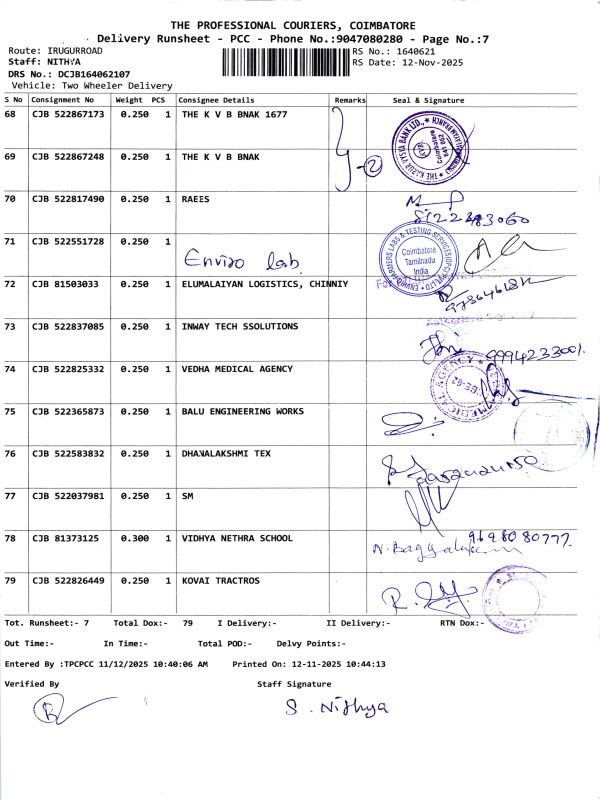 THE PROFESSIONAL COURIERS, COIMBATORE
Delivery Runsheet - PCC - Phone No.:9047080280 - Page No.:7
Route: IRUGURROAD RS No.: 1640621
Staff: NITHYA RS Date: 12-Nov-2025
DRS No.: DCJB164062107
Vehicle: Two Wheeler Delivery
S No Consignment No Weight PCS Consignee Details Remarks Seal & Signature
68 CJB 522867173 0.250 1 THE K V B BNAK 1677
69 CJB 522867248 0.250 1 THE K V B BNAK 2
70 CJB 522817490 0.250 1 RAEES
71 CJB 522551728 0.250 1 Enviro lab Coimbatore Tamilnadu India
72 CJB 81503033 0.250 1 ELUMALAIYAN LOGISTICS, CHINNIY
73 CJB 522837085 0.250 1 INWAY TECH SSOLUTIONS 9994233001.
74 CJB 522825332 0.250 1 VEDHA MEDICAL AGENCY
75 CJB 522365873 0.250 1 BALU ENGINEERING WORKS
76 CJB 522583832 0.250 1 DHANALAKSHMI TEX
77 CJB 522037981 0.250 1 SM
78 CJB 81373125 0.300 1 VIDHYA NETHRA SCHOOL 9698080777.
79 CJB 522826449 0.250 1 KOVAI TRACTROS
Tot. Runsheet:- 7 Total Dox:- 79 I Delivery:- II Delivery:- RTN Dox:-
Out Time:- In Time:- Total POD:- Delvy Points:-
Entered By :TPCPCC 11/12/2025 10:40:06 AM Printed On: 12-11-2025 10:44:13
Verified By Staff Signature
S. Nithya